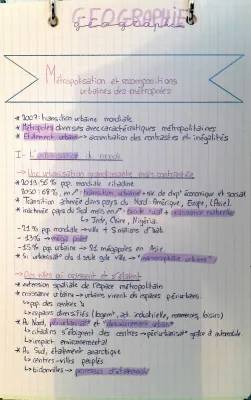 GEOGRAPHIE
géographie
Métropolisation et recompositions
urbaines des métropoles
* 2007: transition urbaine mondiale
* Métropoles diverses avec caractéristiques métropolitaines
* Étalement urbain → accentuation des contrastes et inégalités
I- L'urbanisation du monde
→ Une urbanisation grandissante mais contrastée
* 2018: 55% pop. mondiale citadine
2050: 68%, en ≠ transition urbaine + niv. de dvpt économique et social
* Transition achevée dans pays du Nord: Amérique, Europe, (Asie).
* inachevée pays du Sud mais en ↗: exode rural + croissance naturelle
↳ Inde, Chine, Nigéria.
- 21% pop. mondiale → ville + 5 millions d'hab.
- 13% → mégapoles
- 15% pop. urbaine → 21 mégapoles en Asie
* Si urbanisat° du d seule gde ville → "macrocéphalie urbaine"
→ Des villes qui croissent et s'étalent
* extension spatiale de l'espace métropolitain
* croissance urbaine → urbains vivent des espaces périurbains.
↳ pop. des centres ↘
↳ espaces diversifiés (logemt, act. industrielle, commerces, loisirs)
* Au Nord, périurbanisat° et "desserrement urbain"
↳ citadins s'éloignent des centres → périurbanisat° grâce à automobile
↳ impact environnemental
* Au Sud, étalement anarchique
↳ centres-villes peuplés
↳ bidonvilles →